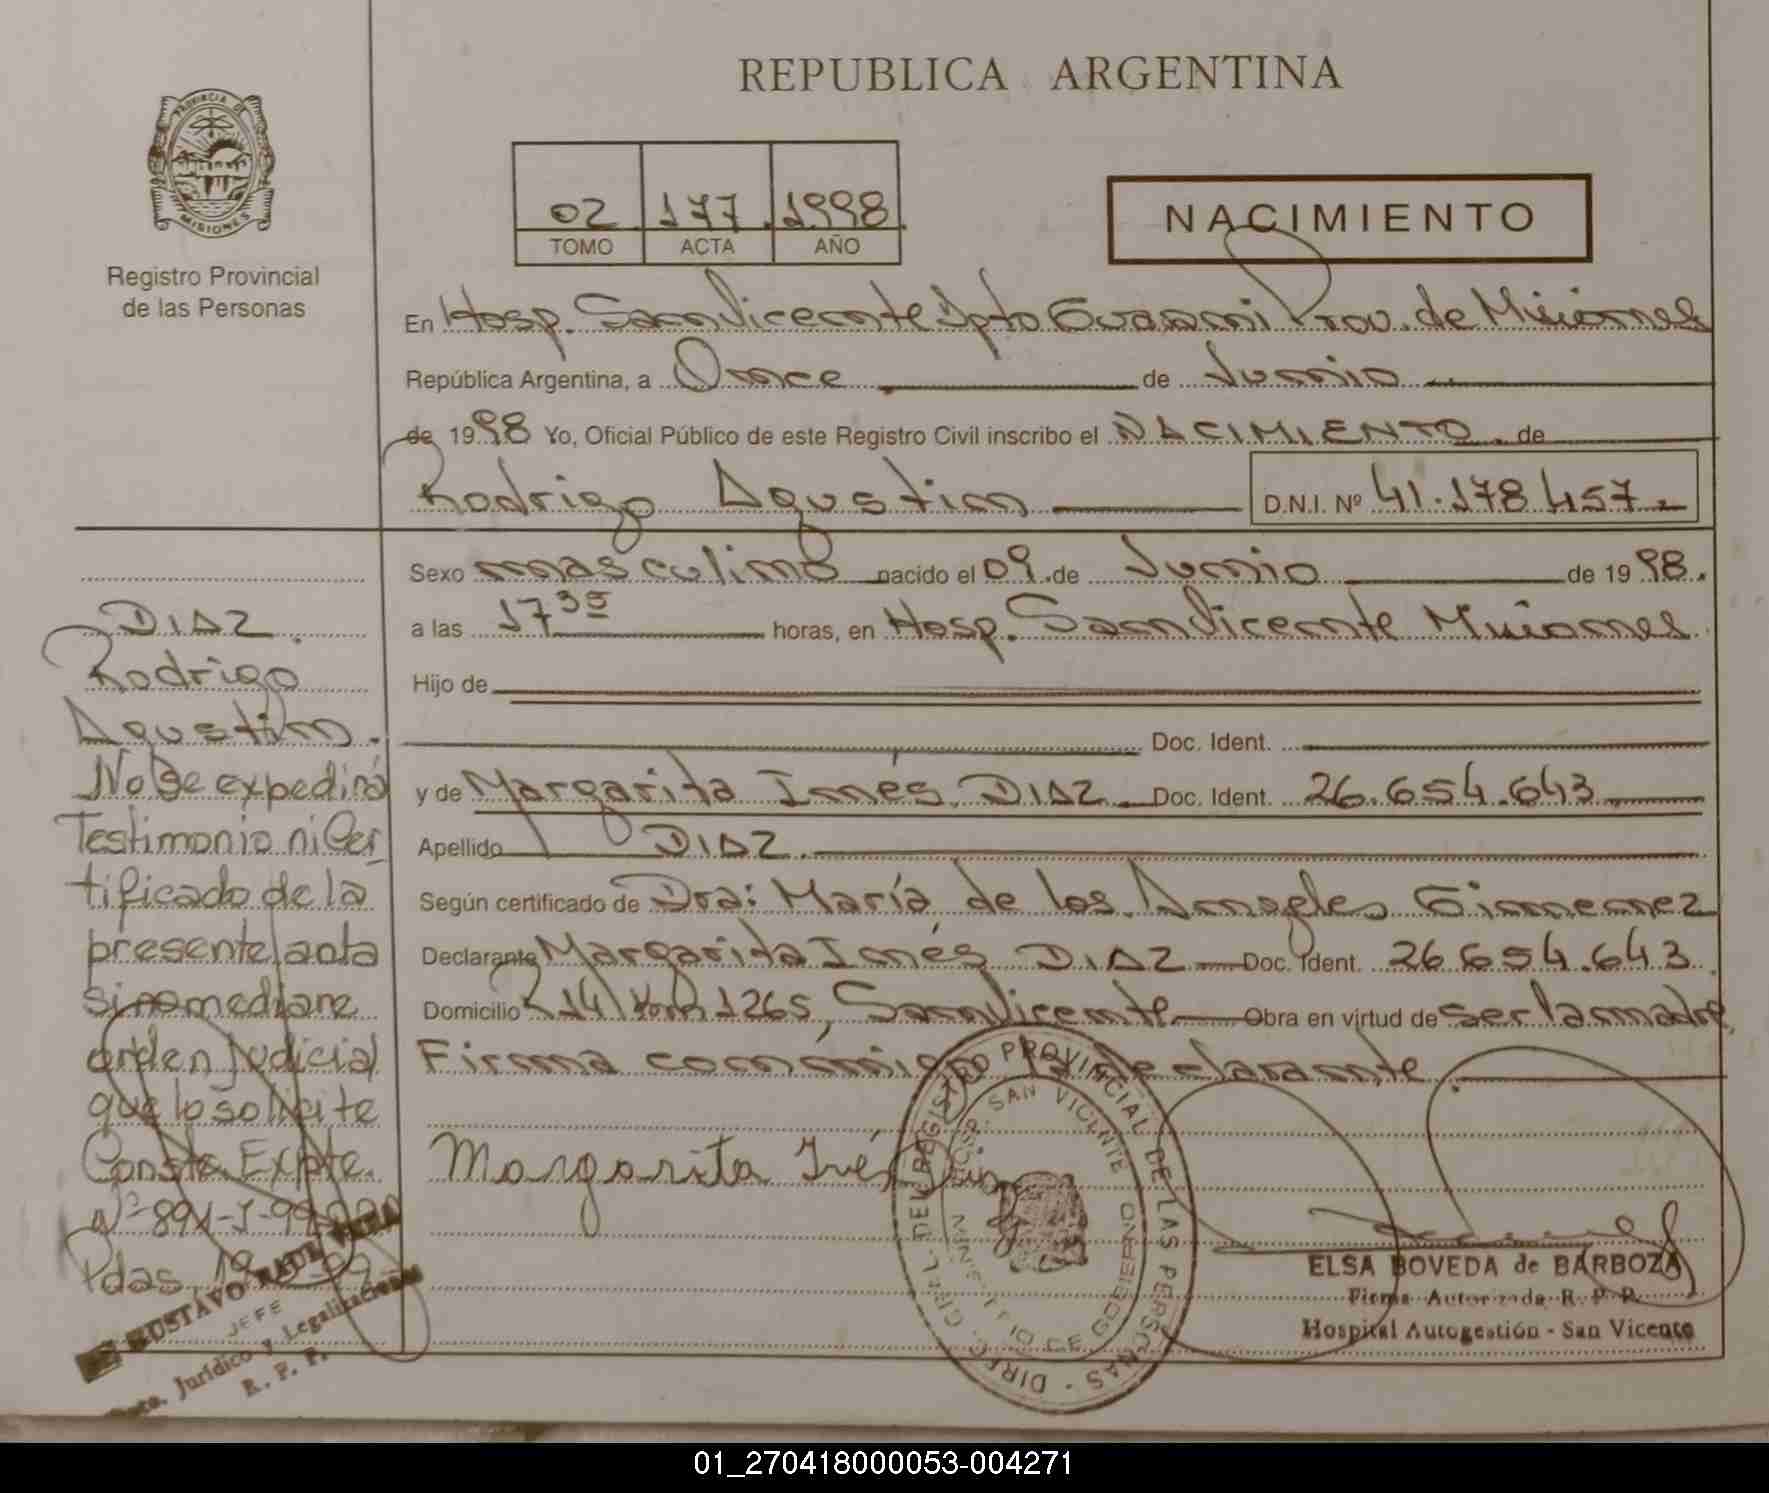 REPUBLICA ARGENTINA
PROVINCIA DE
MISIONES
Registro Provincial
de las Personas
02 177 1998
TOMO ACTA AÑO
NACIMIENTO
En Hosp. San Vicente Dpto Guaraní Prov. de Misiones
República Argentina, a Once de Junio
de 1998 Yo, Oficial Público de este Registro Civil inscribo el NACIMIENTO de
Rodrigo Agustin D.N.I. Nº 41.178.457
Sexo masculino nacido el 09 de Junio de 1998.
a las 17 35 horas, en Hosp. San Vicente Misiones
Hijo de
Doc. Ident.
y de Margarita Inés DIAZ Doc. Ident. 26.654.643
Apellido DIAZ
Según certificado de Dra: María de los Angeles Gimenez
Declarante Margarita Inés DIAZ Doc. Ident. 26.654.643
Domicilio 1265, San Vicente Obra en virtud de ser la madre
Firma conmigo la declarante.
Margarita Inés Diaz
DIREC. GRAL. DEL REGISTRO PROVINCIAL DE LAS PERSONAS
HOSP. SAN VICENTE
MINISTERIO DE GOBIERNO
ELSA BOVEDA de BARBOZA
Firma Autorizada R. P. P.
Hospital Autogestión - San Vicente
DIAZ
Rodrigo
Agustin.
No Se expedirá
Testimonio ni Cer
tificado de la
presente acta
si no mediare
orden Judicial
que lo solicite
Conste. Expte.
Nº 891-J-99
Pdas,
GUSTAVO
JEFE
Dpto. Jurídico y Legalizaciones
R. P. P.
01_270418000053-004271